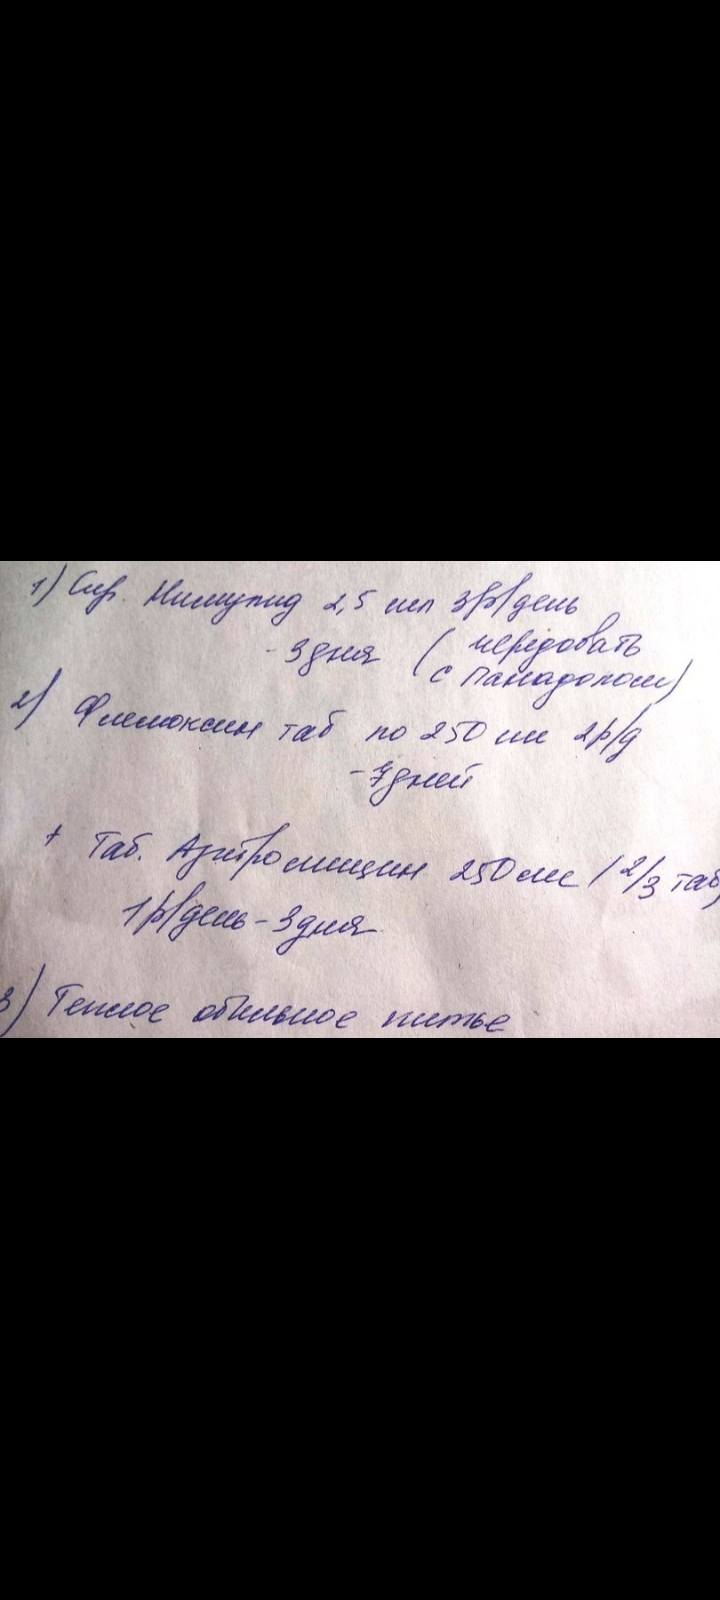 1) Сир. Нимулид 2,5 мл 3р/день
- 3 дня (чередовать
с Панадолом)
2) Флемоксин таб по 250 мг 2р/д
- 7 дней
+ Таб. Азитромицин 250 мг (2/3 таб)
1р/день - 3 дня
3) Теплое обильное питье